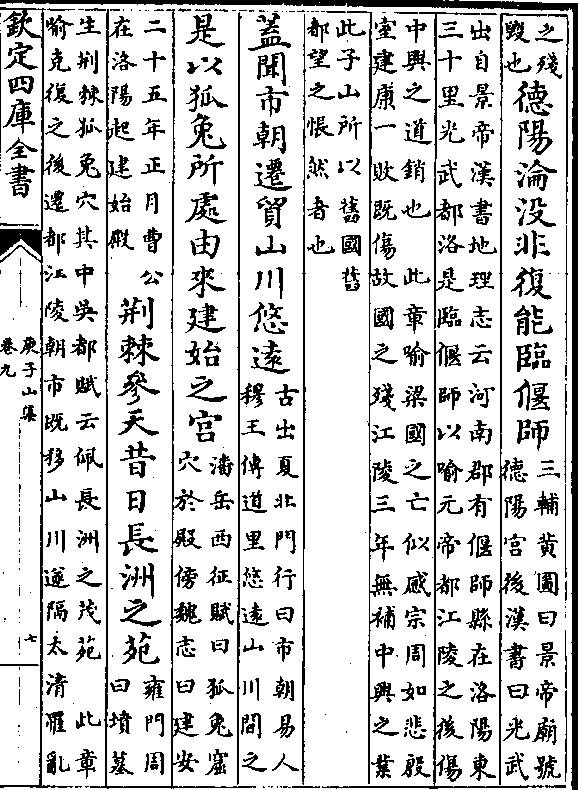 之殘
毁也
德陽淪没非復能臨偃師
三輔黄圖曰景帝廟號
德陽宫後漢書曰光武
出自景帝漢書地理志云河南郡有偃師縣在洛陽東
三十里光武都洛是臨偃師以喻元帝都江陵之後傷
中興之道銷也　此章喻梁國之亡似感宗周如悲殷
室建康一敗既傷故國之殘江陵三年無補中興之業
此子山所以舊國舊
都望之悵然者也
蓋聞市朝遷貿山川悠遠
古出夏北門行曰市朝易人
穆王傳道里悠遠山川間之
是以狐兎所處由來建始之宫
潘岳西征賦曰狐兎窟
穴於殿傍魏志曰建安
二十五年正月曹公
在洛陽起建始殿
荆棘參天昔日長洲之苑
雍門周
曰墳墓
生荆棘狐兎穴其中吳都賦云佩長洲之茂苑　此章
喻克復之後遷都江陵朝市既移山川遂隔太清罹亂
欽定四庫全書
庾子山集
卷九
七